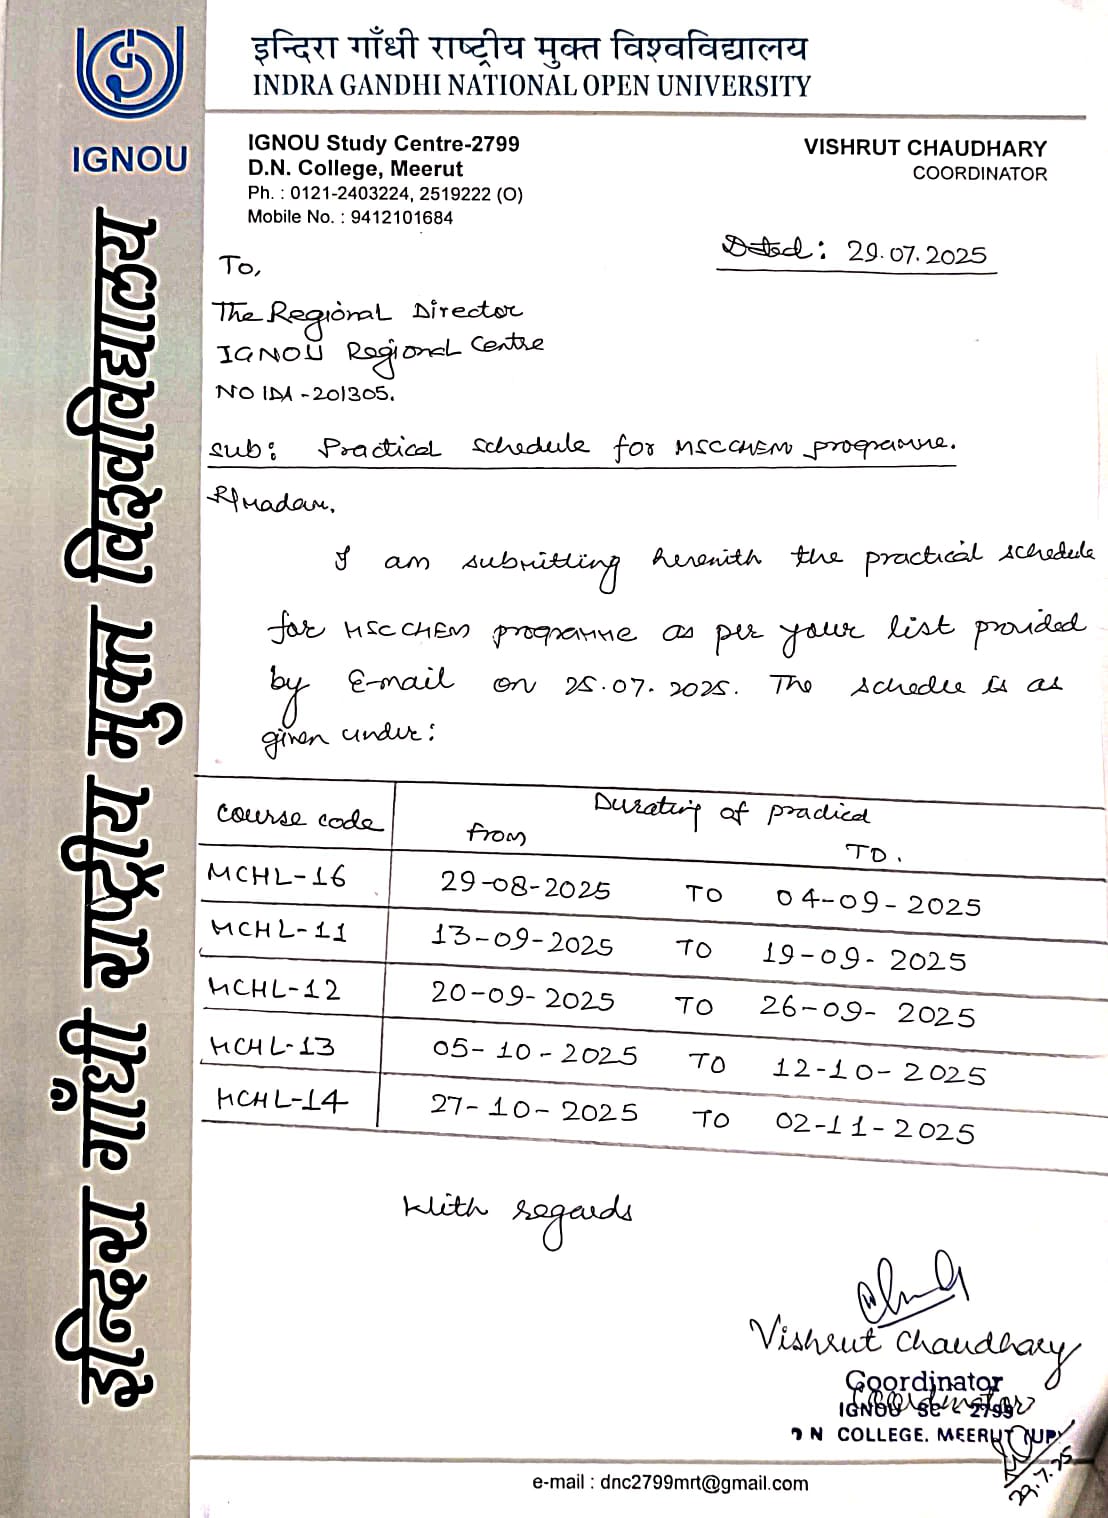 इन्दिरा गाँधी राष्ट्रीय मुक्त विश्वविद्यालय
INDRA GANDHI NATIONAL OPEN UNIVERSITY
IGNOU
IGNOU Study Centre-2799
D.N. College, Meerut
Ph. : 0121-2403224, 2519222 (O)
Mobile No. : 9412101684
VISHRUT CHAUDHARY
COORDINATOR
Dated: 29.07.2025
To,
The Regional Director
IGNOU Regional Centre
NOIDA-201305.
Sub: Practical Schedule for MSCCHEM programme.
R/madam,
I am submitting herewith the practical schedule
for MSCCHEM programme as per your list provided
by E-mail on 25.07.2025. The schedle is as
given under:
Course code Durating of practical
From TO.
MCHL-16 29-08-2025 TO 04-09-2025
MCHL-11 13-09-2025 TO 19-09-2025
MCHL-12 20-09-2025 TO 26-09-2025
MCHL-13 05-10-2025 TO 12-10-2025
MCHL-14 27-10-2025 TO 02-11-2025
With regards
Vishrut Chaudhary
Coordinator
Coordinator
IGNOU SC - 2799
D N COLLEGE. MEERUT (UP)
29.7.25
e-mail : dnc2799mrt@gmail.com
इन्दिरा गाँधी राष्ट्रीय मुक्त विश्वविद्यालय